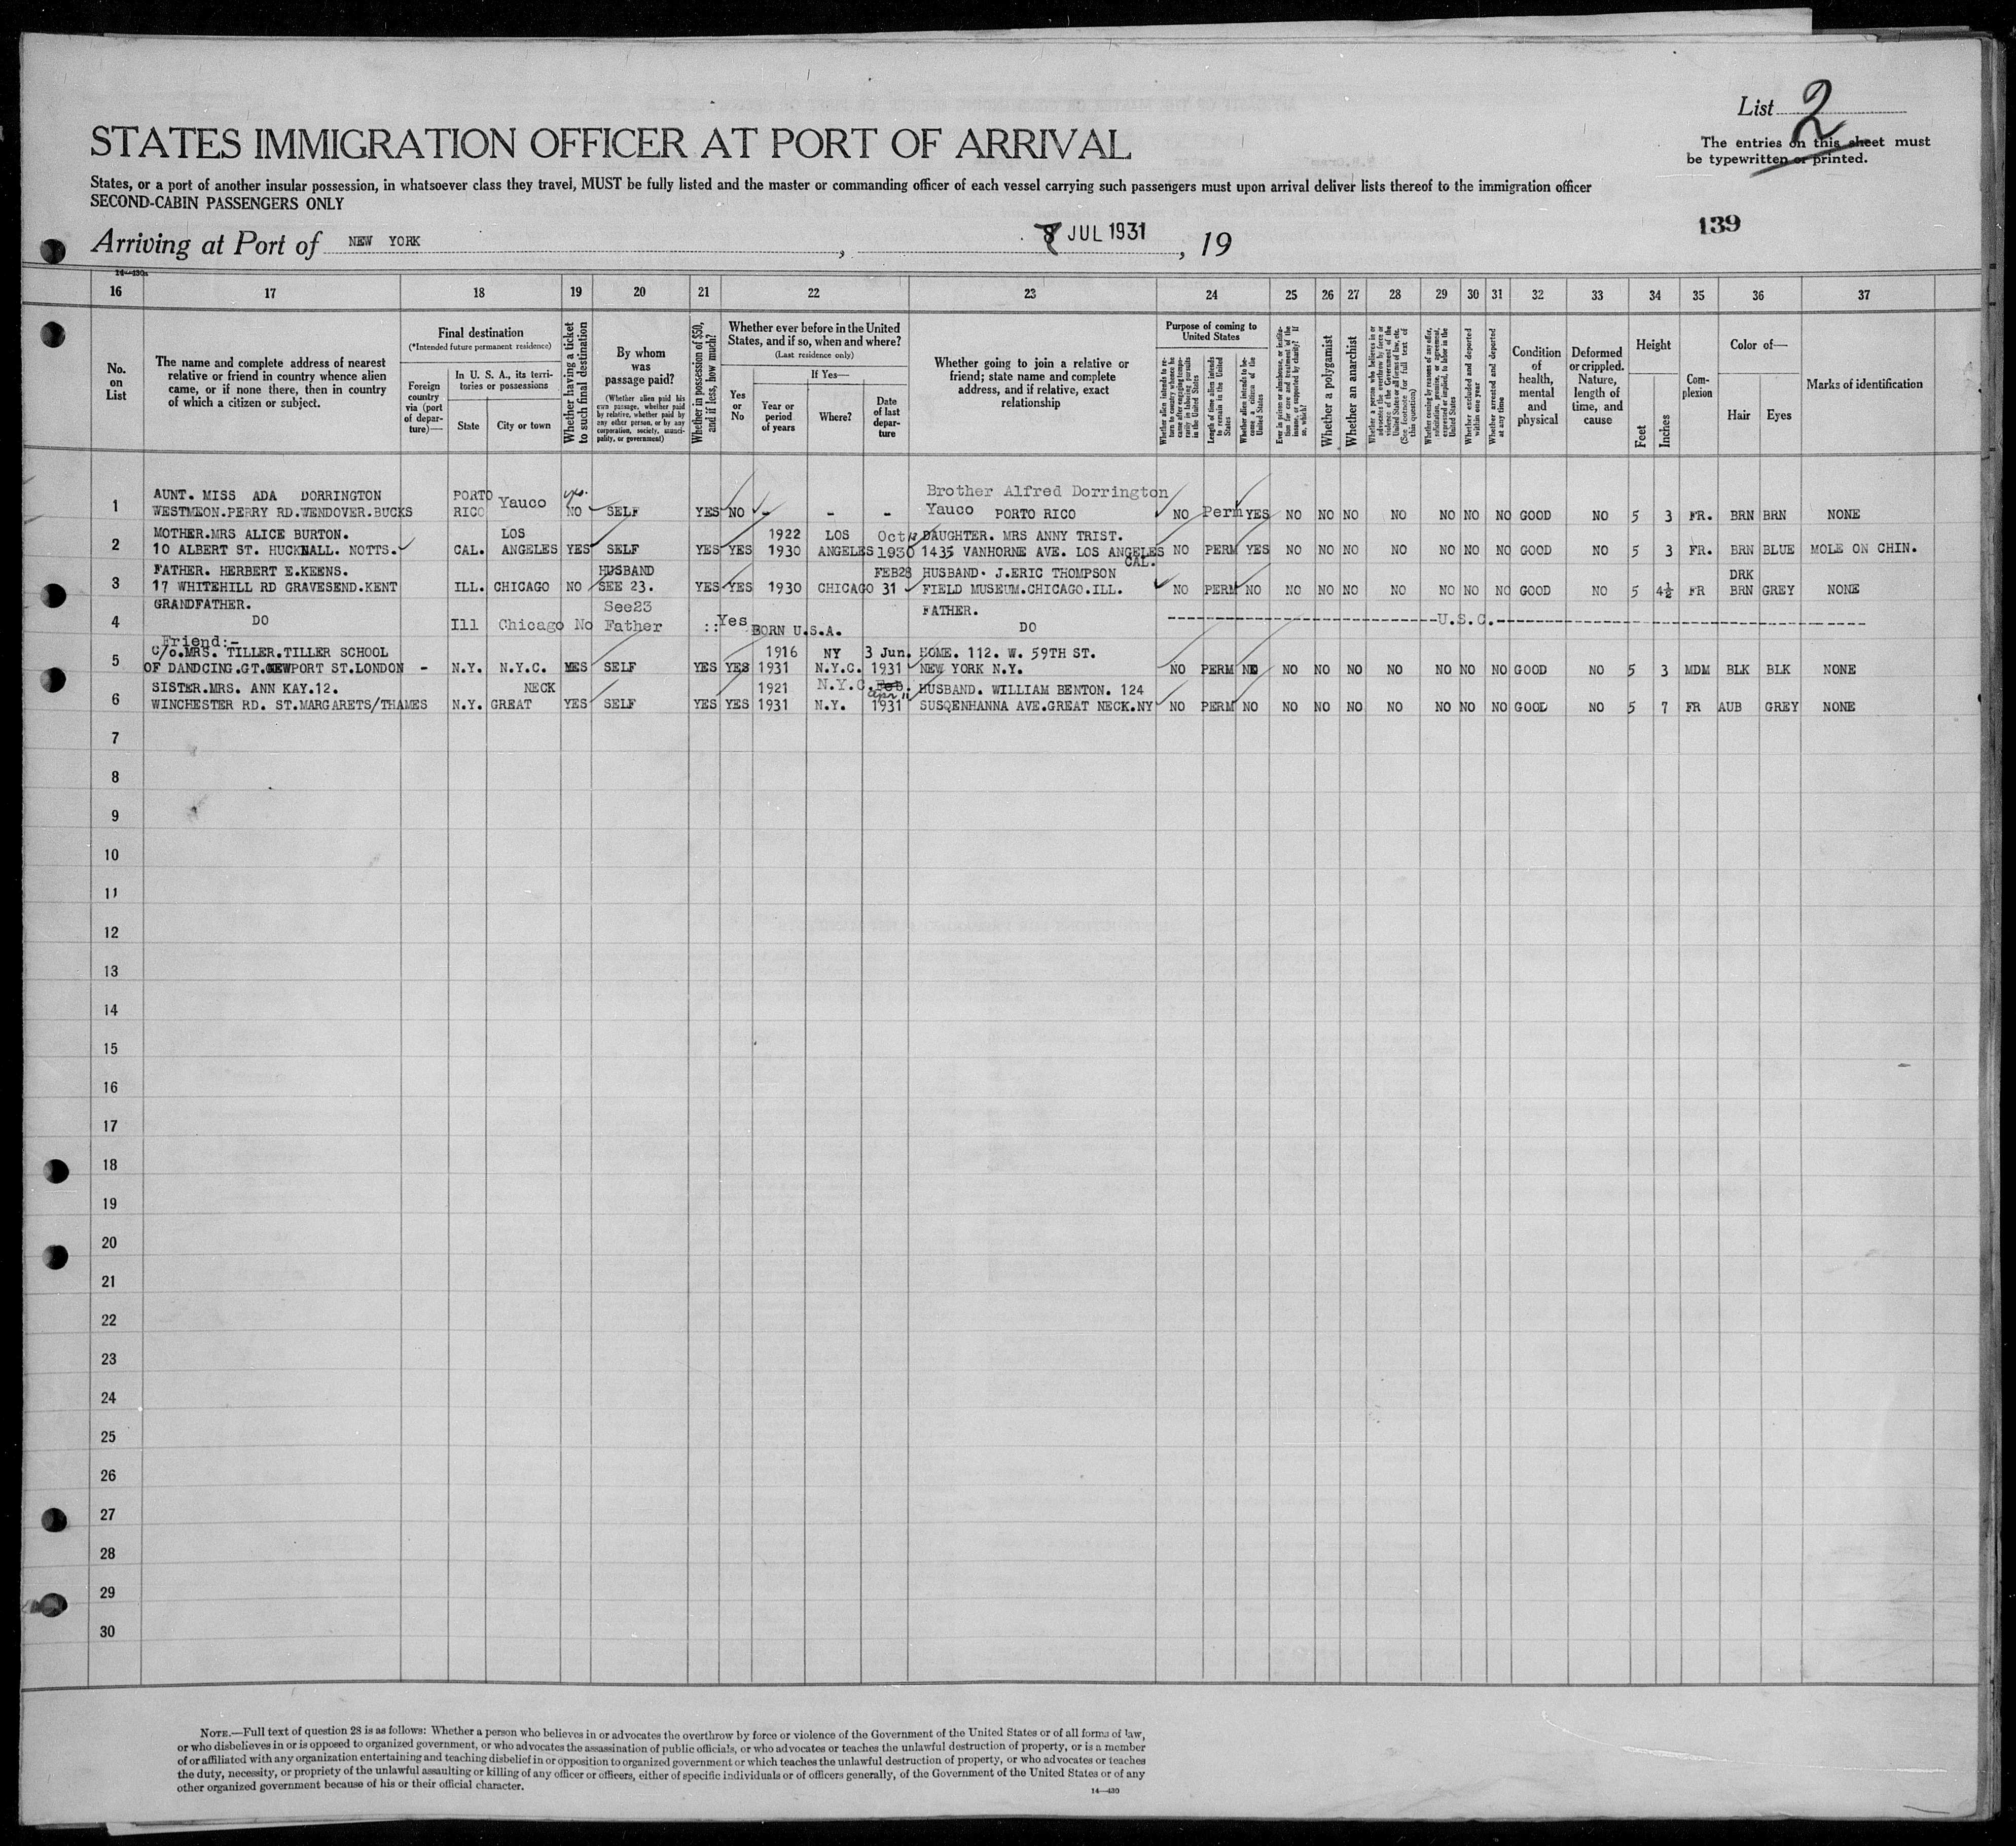 List 2
The entries on this sheet must
be typewritten or printed.
STATES IMMIGRATION OFFICER AT PORT OF ARRIVAL
States, or a port of another insular possession, in whatsoever class they travel, MUST be fully listed and the master or commanding officer of each vessel carrying such passengers must upon arrival deliver lists thereof to the immigration officer
SECOND-CABIN PASSENGERS ONLY
139
Arriving at Port of NEW YORK, 8 JUL 1931, 19
14—430
16 17 18 19 20 21 22 23 24 25 26 27 28 29 30 31 32 33 34 35 36 37
No. on List
The name and complete address of nearest
relative or friend in country whence alien
came, or if none there, then in country
of which a citizen or subject.
Final destination
(*Intended future permanent residence)
Foreign country via (port of departure)—
In U. S. A., its territories or possessions
State City or town
Whether having a ticket to such final destination
By whom was passage paid?
(Whether alien paid his own passage, whether paid by relative, whether paid by any other person, or by any corporation, society, municipality, or government)
Whether in possession of $50, and if less, how much?
Whether ever before in the United
States, and if so, when and where?
(Last residence only)
Yes or No
If Yes—
Year or period of years
Where?
Date of last departure
Whether going to join a relative or
friend; state name and complete
address, and if relative, exact
relationship
Purpose of coming to United States
Whether alien intends to return to country whence he came after engaging temporarily in laboring pursuits in the United States
Length of time alien intends to remain in the United States
Whether alien intends to become a citizen of the United States
Ever in prison or almshouse, or institution for care and treatment of the insane, or supported by charity? If so, which?
Whether a polygamist
Whether an anarchist
Whether a person who believes in or advocates the overthrow by force or violence of the Government of the United States or all forms of law, etc. (See footnote for full text of this question)
Whether coming by reasons of any offer, solicitation, promise, or agreement, expressed or implied, to labor in the United States
Whether excluded and deported within one year
Whether arrested and deported at any time
Condition of health, mental and physical
Deformed or crippled. Nature, length of time, and cause
Height
Feet Inches
Complexion
Color of—
Hair Eyes
Marks of identification
AUNT. MISS ADA DORRINGTON PORTO yes. Brother Alfred Dorrington
1 WESTMEON.PERRY RD.WENDOVER.BUCKS RICO Yauco NO SELF YES NO - - - Yauco PORTO RICO NO Perm YES NO NO NO NO NO NO NO GOOD NO 5 3 FR. BRN BRN NONE
MOTHER.MRS ALICE BURTON. LOS 1922 LOS Oct DAUGHTER. MRS ANNY TRIST.
2 10 ALBERT ST. HUCKNALL. NOTTS. CAL. ANGELES YES SELF YES YES 1930 ANGELES 1930 1435 VANHORNE AVE. LOS ANGELES CAL. NO PERM YES NO NO NO NO NO NO NO GOOD NO 5 3 FR. BRN BLUE MOLE ON CHIN.
FATHER. HERBERT E.KEENS. HUSBAND FEB28 HUSBAND. J.ERIC THOMPSON DRK
3 17 WHITEHILL RD GRAVESEND.KENT ILL. CHICAGO NO SEE 23. YES YES 1930 CHICAGO 31 FIELD MUSEUM.CHICAGO.ILL. NO PERM NO NO NO NO NO NO NO NO GOOD NO 5 4½ FR BRN GREY NONE
GRANDFATHER. See23 FATHER.
4 DO Ill Chicago No Father :: Yes BORN U.S.A. DO U.S.C.
Friend:-
C/o.MRS. TILLER.TILLER SCHOOL 1916 NY 3 Jun. HOME. 112. W. 59TH ST.
5 OF DANDCING.GT.NEWPORT ST.LONDON - N.Y. N.Y.C. YES SELF YES YES 1931 N.Y.C. 1931 NEW YORK N.Y. NO PERM NO NO NO NO NO NO NO NO GOOD NO 5 3 MDM BLK BLK NONE
SISTER.MRS. ANN KAY.12. NECK 1921 N.Y.C. Feb. Apr 11 HUSBAND. WILLIAM BENTON. 124
6 WINCHESTER RD. ST.MARGARETS/THAMES N.Y. GREAT YES SELF YES YES 1931 N.Y. 1931 SUSQENHANNA AVE.GREAT NECK.NY NO PERM NO NO NO NO NO NO NO NO GOOD NO 5 7 FR AUB GREY NONE
7
8
9
10
11
12
13
14
15
16
17
18
19
20
21
22
23
24
25
26
27
28
29
30
NOTE.—Full text of question 28 is as follows: Whether a person who believes in or advocates the overthrow by force or violence of the Government of the United States or of all forms of law,
or who disbelieves in or is opposed to organized government, or who advocates the assassination of public officials, or who advocates or teaches the unlawful destruction of property, or is a member
of or affiliated with any organization entertaining and teaching disbelief in or opposition to organized government or which teaches the unlawful destruction of property, or who advocates or teaches
the duty, necessity, or propriety of the unlawful assaulting or killing of any officer or officers, either of specific individuals or of officers generally, of the Government of the United States or of any
other organized government because of his or their official character.
14—430